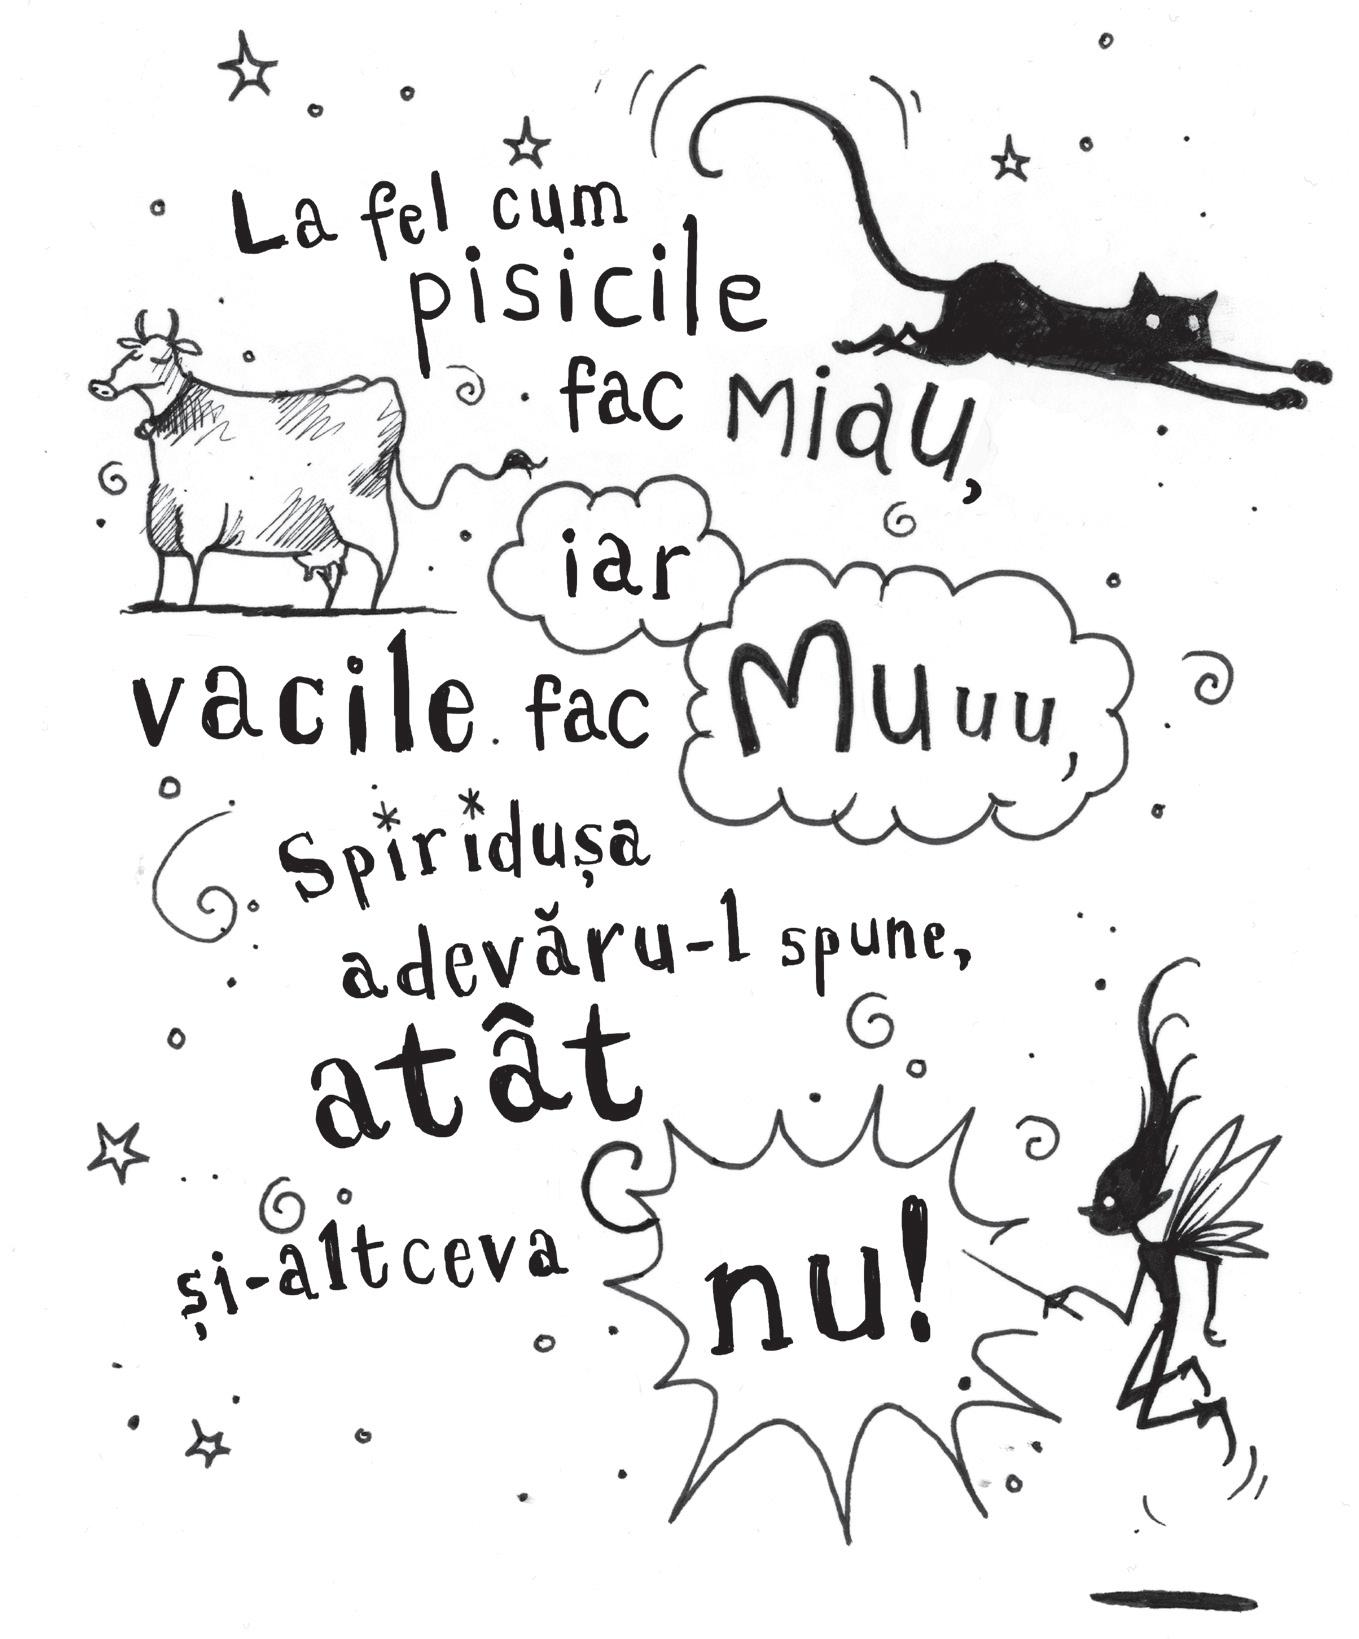 La fel cum
pisicile
fac Miau,
iar
vacile fac Muuu,
Spiridușa
adevăru-l spune,
atât
și-altceva
nu!